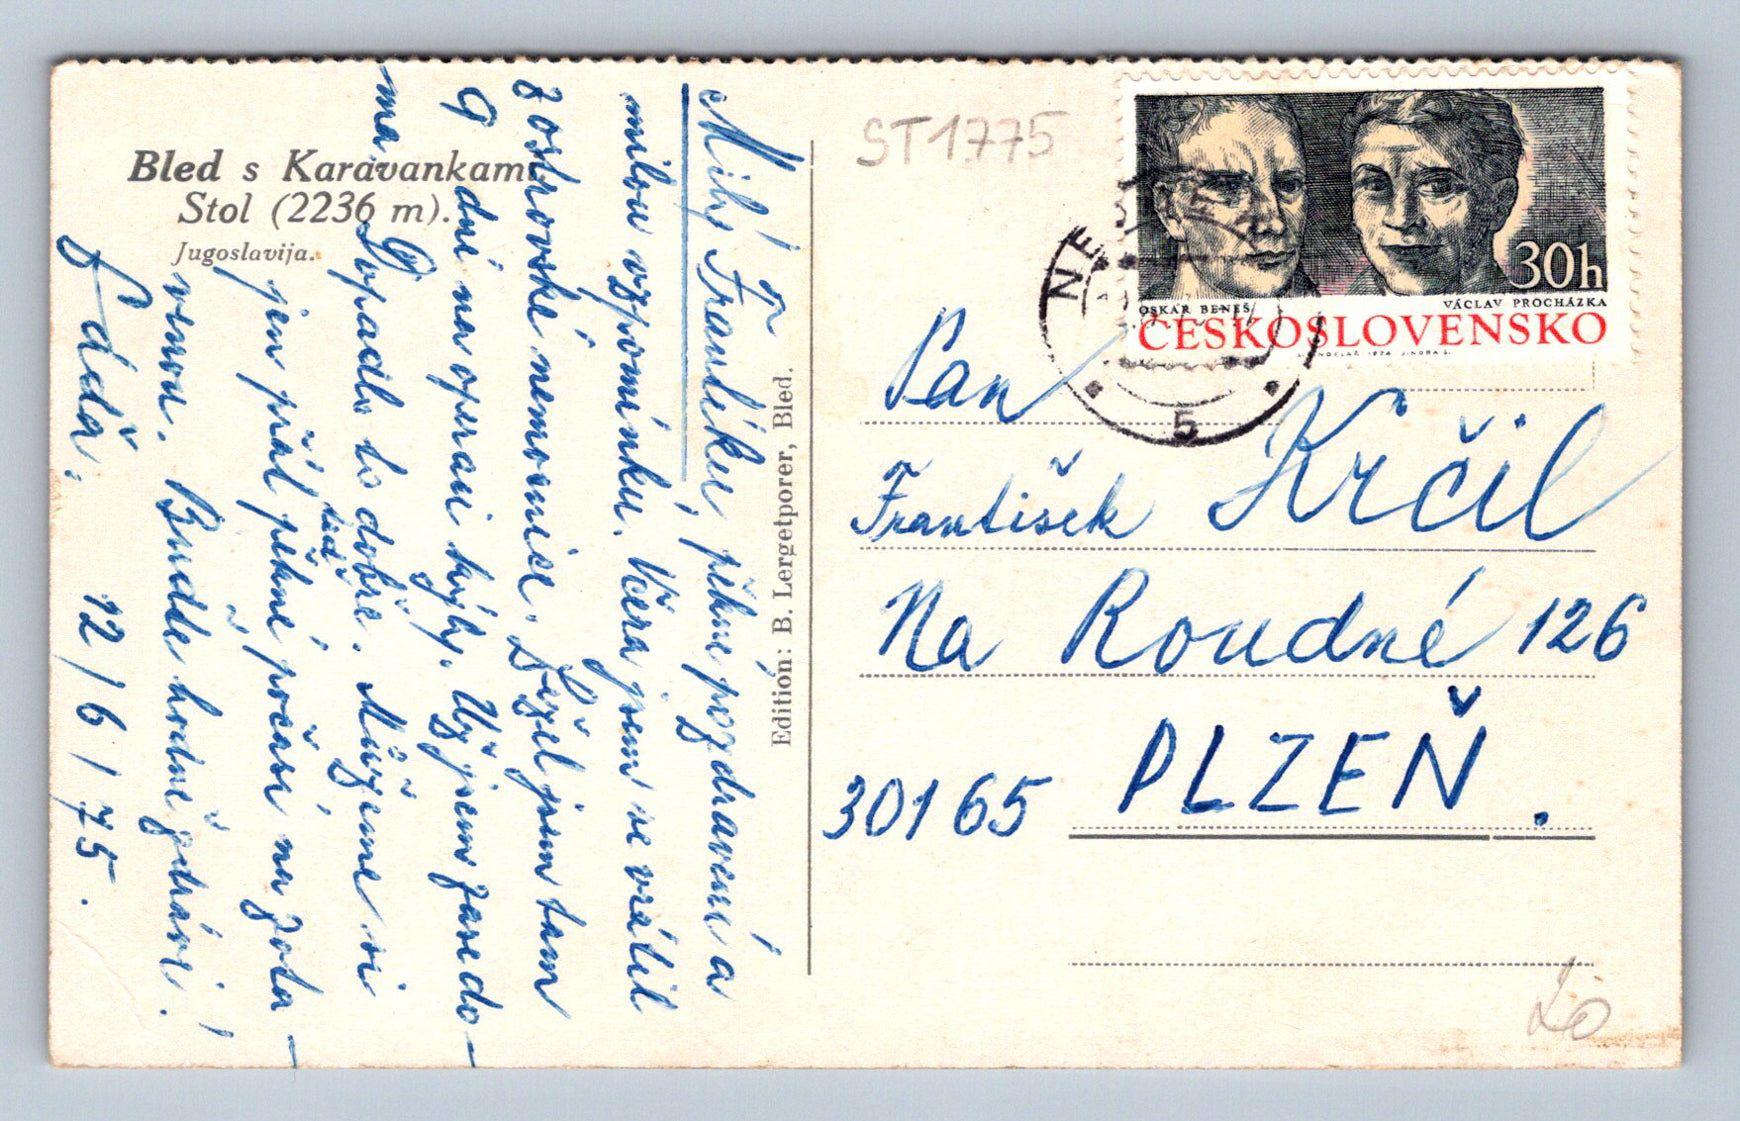 Bled s Karavankami
Stol (2236 m).
Jugoslavija.
Edition: B. Lergetporer, Bled.
Milý Frantíku, pěkné pozdravení a
milou vzpomínku. Včera jsem se vrátil
z ostrovské nemocnice. Ležel jsem tam
9 dní na operaci kýly. Už jsem zase do-
ma. Dopadlo to dobře. Můžeme si
teď
jen přát pěkné počasí na zota-
venou. Buďte hodně zdrávi!
Láďa. 12/6/75.
ST1775
30h
OSKAR BENEŠ
VÁCLAV PROCHÁZKA
ČESKOSLOVENSKO
NE
5
Pan
František Krčil
Na Roudné 126
30165 PLZEŇ.